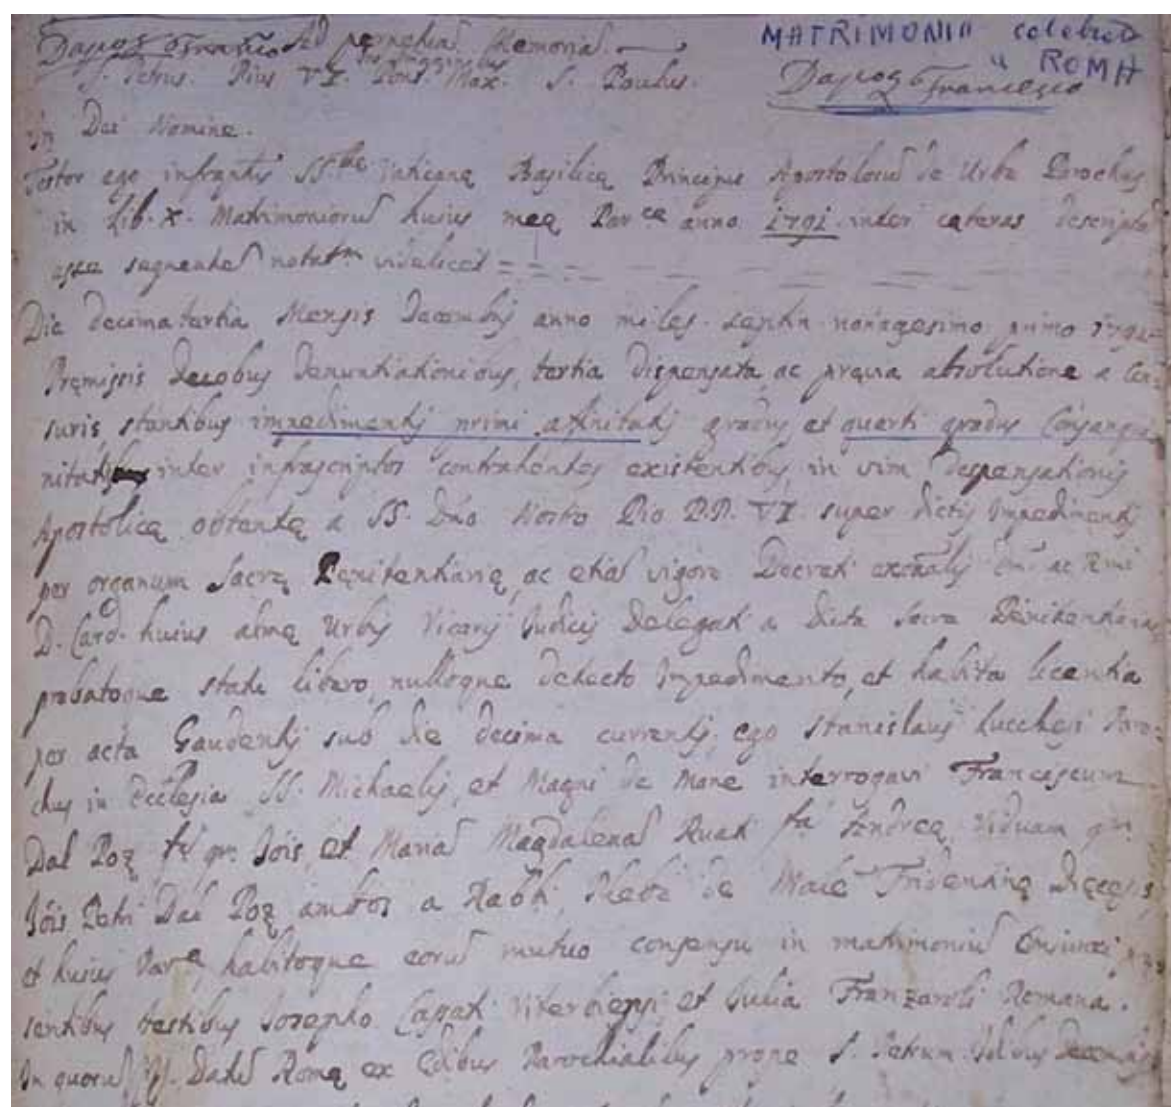 Dapoz Francesco Ad perpetuaʃ Memoriaʃ.
MATRIMONII celebrati
" ROMA
S. Petrus. Pius VI. Pont. Max. S. Paulus.
Dapoz Francesco
In Dei Nomine.
Testor ego infraptus SS.tae Vaticanę Basilicę Principis Apostolorū de Urbe Parochus
in Lib. X. Matrimoniorū huius meę Par.cę anno 1791 inter cęteras descriptā
esse sequenteʃ notat.m videlicet =
Die decimatertia Mensis Decembris anno milles. septin. nonagesimo primo 1791
Pręmissis duobus denuntiationibus, tertia dispensata, ac prævia absolutione a Cen-
suris, stantibus impedimentis primi affinitatis gradus et quarti gradus Consangui-
nitatis inter infrascriptos contrahentes existentibus, in vim dispensationis
Apostolicę obtentę a SS. Dño Nostro Pio P.P. VI. super dictis Impedimentis
per organum Sacrę Pęnitentiarię, ac etiā vigore Decreti Emi ac Rmi
D. Card. huius almę Urbis Vicarij Judicis Delegati a dicta Sacra Pænitentiaria
probatoque statu libero, nulloque detecto Impedimento, et habita licentia
per acta Gaudentij sub die decima currentis, ego Stanislaus Lucchesi Paro-
chus in Ecclesia SS. Michaelis, et Magni de Mane interrogavi Franciscum
Dal Poz fū qm. Jois, et Mariaʃ Magdalenaʃ Ruati fā Andreę, Viduam qm.
Jois Petri Dal Poz ambos a Rabbi, Plebe de Malè Tridentinę Dięcesis,
et huius Par.ę habitoque eorū mutuo consensu in matrimoniū Coniunxi prę-
sentibus testibus Josepho Viterbiensi et Julia Franzaroli Romana.
In quorū ff. Datū Romę ex Ędibus Parochialibus prope S. Petrum